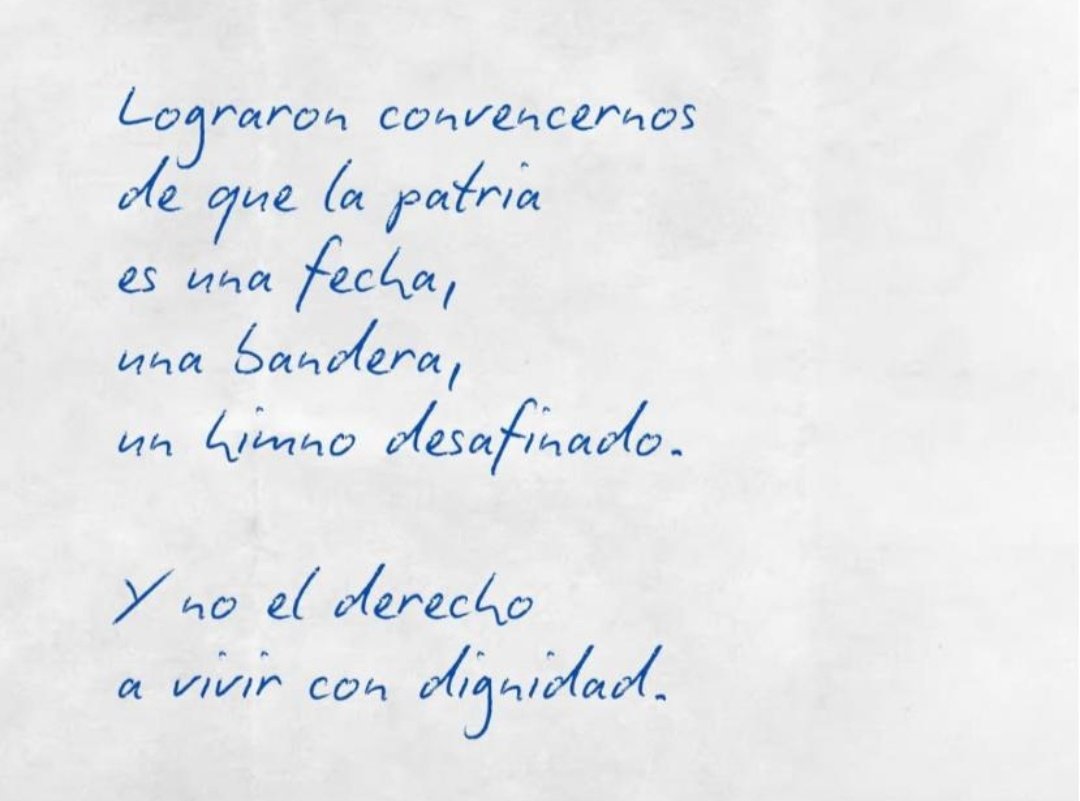 Lograron convencernos
de que la patria
es una fecha,
una bandera,
un himno desafinado.
Y no el derecho
a vivir con dignidad.